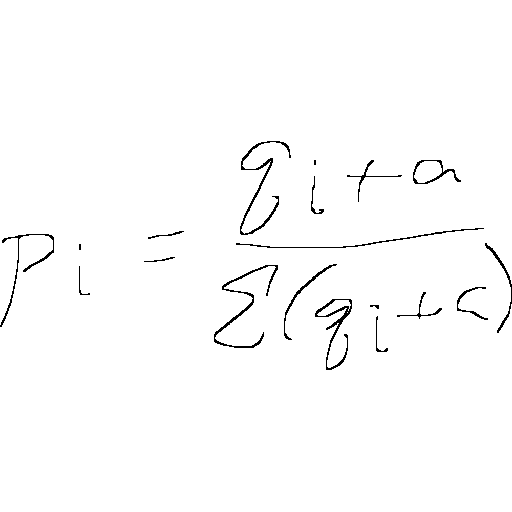 p_i = \frac{q_i + a}{\sum (q_i + a)}